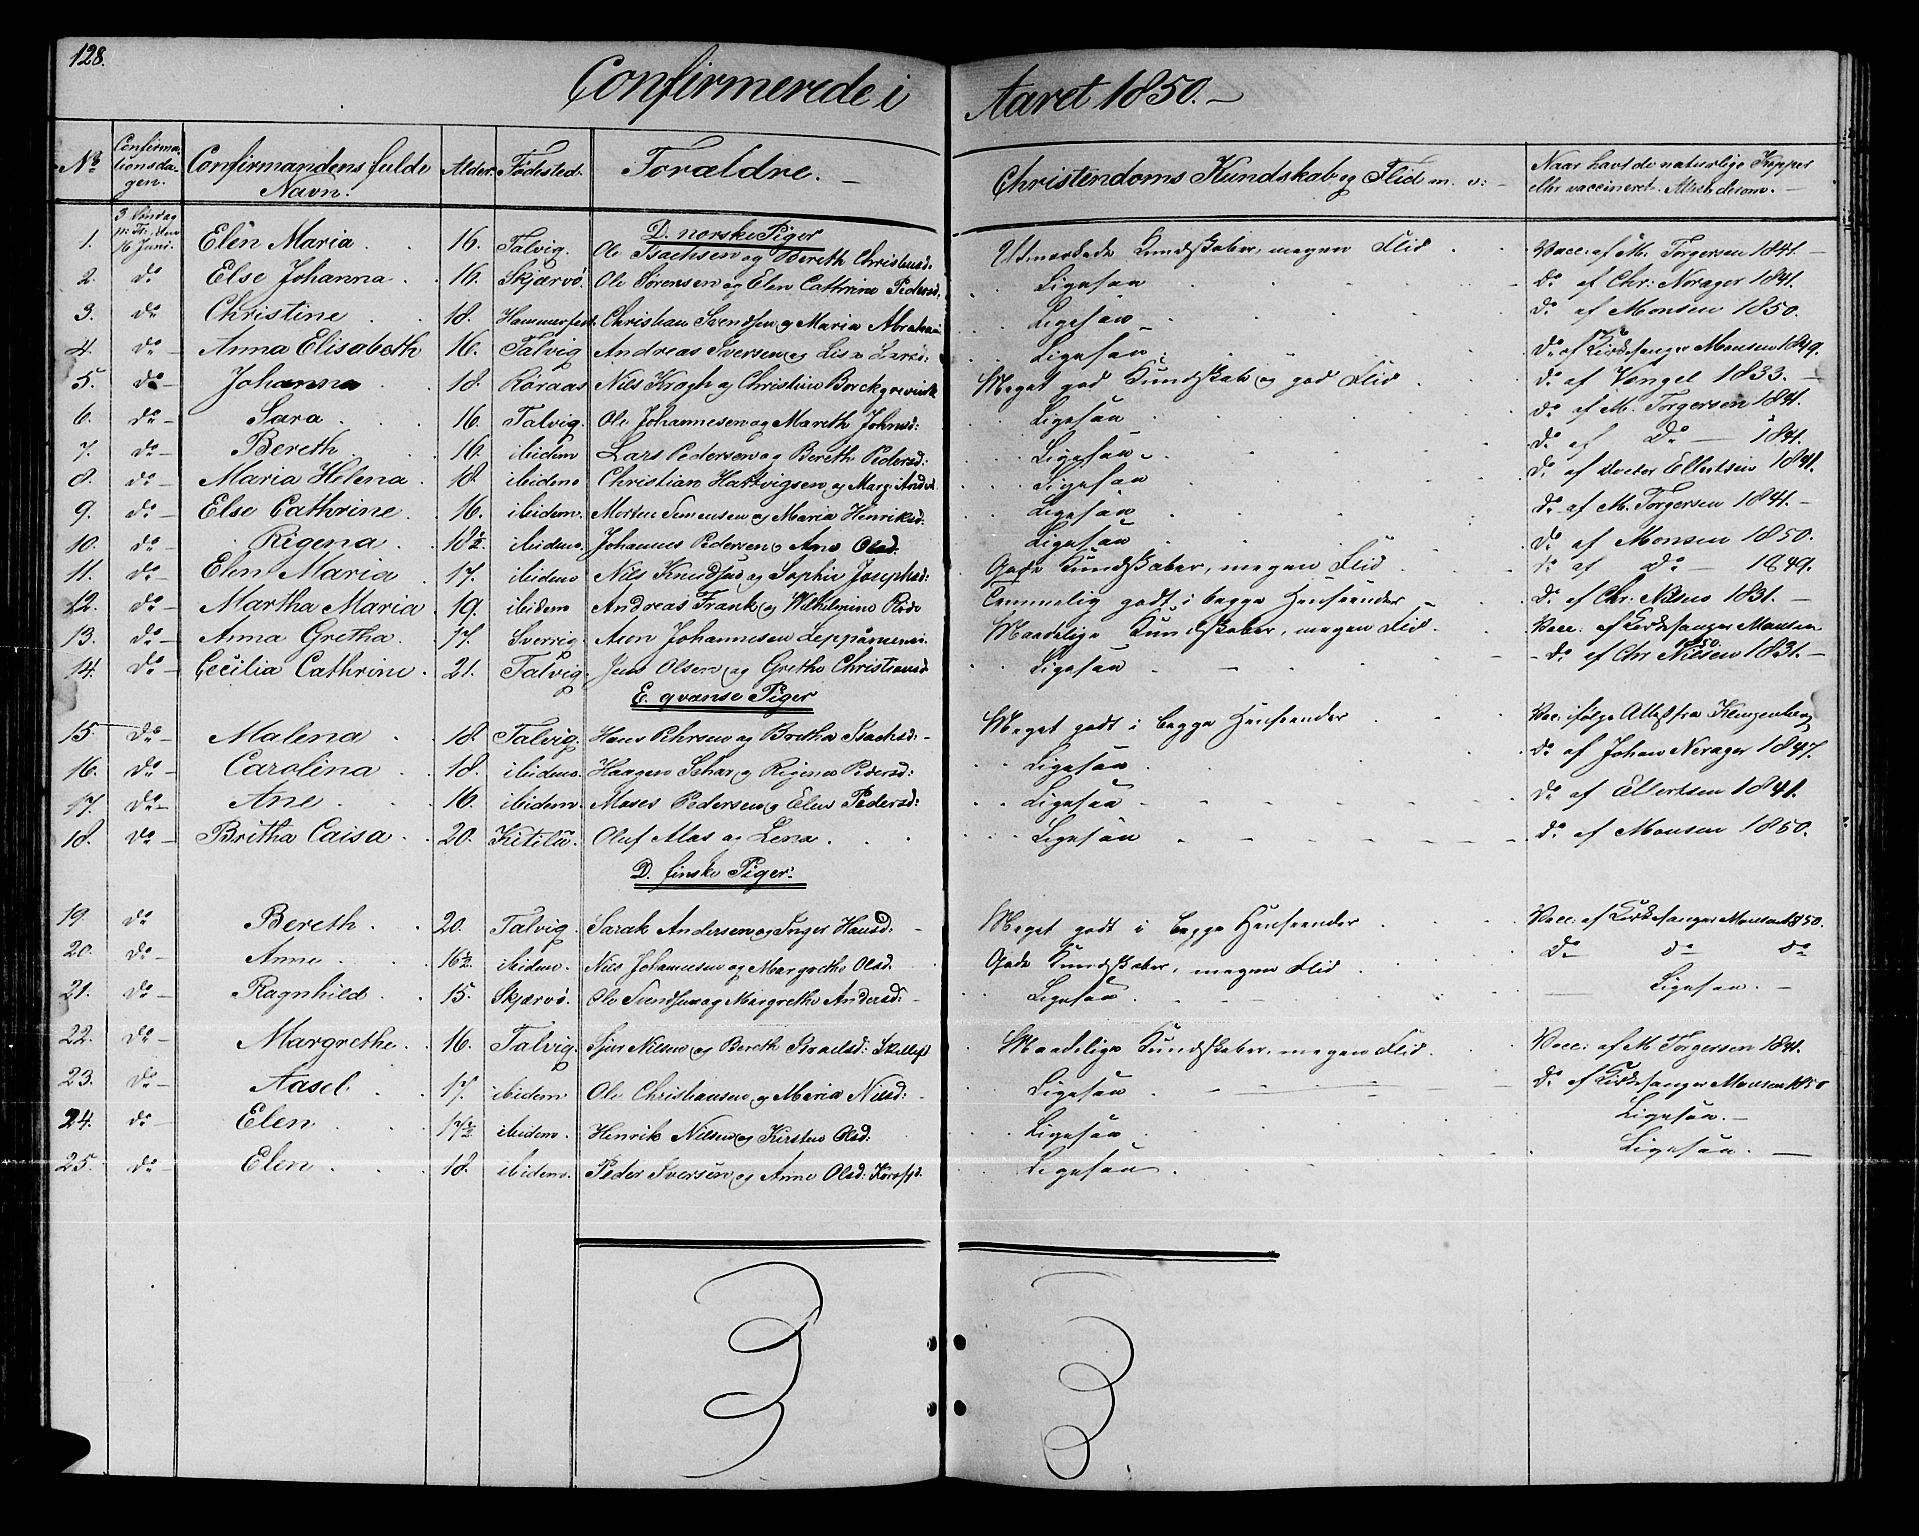 128.
Confirmerede i Aaret 1850. —
No Confirmationsdagen. Confirmandens fulde Navn. Alder. Fødested. Forældre. — Christendoms Kundskab og Flid m. v: — Naar havt de naturlige Kopper eller vaccineret. Attest derom. —
D. norske Piger
1. 3 Søndag p: Tr:, den 16 Juni. Elen Maria 16. Talvig. Ole Isachsen og Bereth Christensd: Udmærkede Kundskaber, megen Flid Vacc: af M. Torgersen 1841. —
2. do Else Johanna 16. Skjærvö. Ole Sørensen og Elen Cathrine Pedersd. Ligesaa do af Chr: Norager 1841.
3. do Christine 18. Hammerfest. Christian Svendsen og Maria Abraham Ligesaa do af Monsen 1850.
4. do Anna Elisabeth 16. Talvig Andreas Iversen og Lisa Ligesaa do af Kirkesanger Monsen 1849.
5. do Johanna 18. Röraas Nils Krogh og Christine Borckgrevink Meget god Kundskab og god Flid do af Vengel 1833. —
6. do Sara 16. Talvig. Ole Johannesen og Mareth Johnsd: Ligesaa do af M. Torgersen 1841.
7. do Bereth 16. ibidem Lars Pedersen og Bereth Pedersd: Ligesaa do af do — 1841.
8. do Maria Helena 18. ibidem Christian Hartvigsen og Marg: Andersd Ligesaa do af Doctor Ellertsen 1841.
9. do Else Cathrine 16. ibidem. Morten Simensen og Maria Henriksd: Ligesaa do af M. Torgersen 1841. —
10. do Rigena 18½. ibidem. Johannes Pedersen og Ane Olsd. Ligesaa do af Monsen 1850.
11. do Elen Maria 17. ibidem Nils Knudsen og Sophie Josephsd: Gode Kundskaber, megen Flid do af do — 1849.
12. do Martha Maria 19. ibidem Andreas Frank og Wilhelmine Temmelig godt i begge Henseender do af Chr. Nilsen 1831. —
13. do Anna Gretha 17. Sverrig. Aron Johannesen Maadelige Kundskaber, megen Flid. Vacc: af Kirkesanger Monsen 1850.
14. do Cecilia Cathrine 21. Talvig Jens Olsen og Grethe Christiansd Ligesaa do af Chr Nilsen 1831. —
E. qvænse Piger
15. do Malena 18. Talvig. Hans Pehrsen og Bretha Isachsd: Meget godt i begge Henseender Vac: ifølge Attest fra Klingenberg
16. do Carolina 18. ibidem. Haagen og Rigena Pedersd: Ligesaa do af Johan Norager 1847.
17. do Ane 16. ibidem. Moses Pedersen og Elen Pedersd: Ligesaa do af Ellertsen 1841.
18. do Britha Caisa 20. Kitilä. Oluf Alas og Lena Ligesaa do af Monsen 1850.
D. finske Piger.
19. do Bereth 20. Talvig. Sarak Andersen og Inger Hansd: Meget godt i begge Henseender Vacc: af Kirkesanger Monsen 1850.
20. do Anne 16½ ibidem. Nils Johannesen og Margrethe Olsd. Gode Kundskaber, megen Flid do do do
21. do Ragnhild 15. Skjærvö. Ole Svendsen og Margrethe Andersd: Ligesaa Ligesaa. —
22. do Margrethe 16. Talvig. Sjur Nilsen og Bereth Maadelige Kundskaber, megen Flid. Vacc: af M Torgersen 1841.
23. do Aasel 17. ibidem Ole Christiansen og Maria Nilsd: Ligesaa do af Kirkesanger Monsen 1850
24. do Elen 17½. ibidem. Henrik Nilsen og Kirsten Olsd: Ligesaa Ligesaa. —
25. do Elen 18. ibidem. Peder Iversen og Anne Olsd: Ligesaa Ligesaa. —